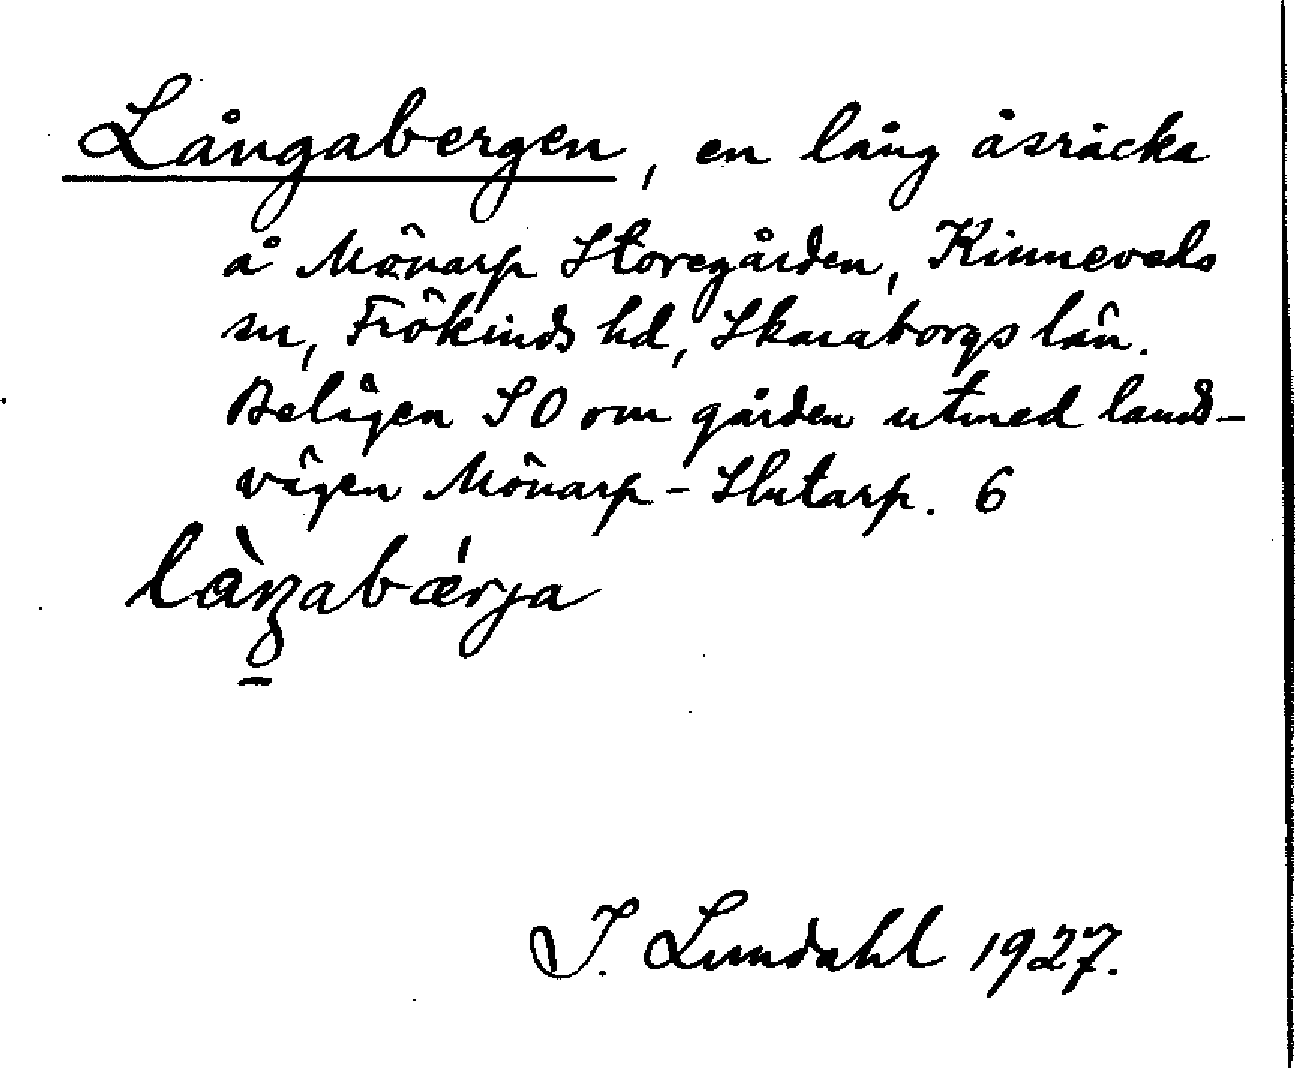 Långabergen, en lång åsräcka
å Mönarp Storegården, Kinneveds
sn, Frökinds hd, Skaraborgs län.
Belägen SO om gården utmed lands-
vägen Mönarp - Slutarp. 6
làŋabǽrja
J. Lundahl 1927.